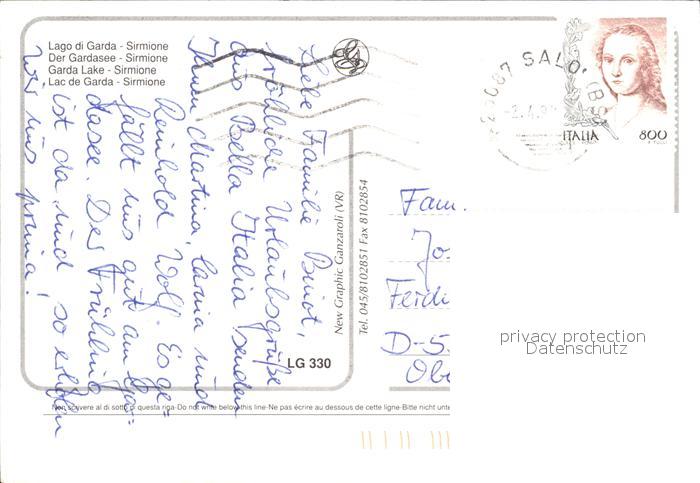 Lago di Garda - Sirmione
Der Gardasee - Sirmione
Garda Lake - Sirmione
Lac de Garda - Sirmione
Liebe Familie Binot,
fröhliche Urlaubsgrüße
aus Bella Italia senden
Ihnen Martina, Carina und
Reinhold Wolf. Es ge=
fällt uns gut am Gar=
dasee. Der Frühling
ist da und so erholen
wir uns prima!
New Graphic Ganzaroli (VR)
Tel. 045/8102851 Fax 8102854
LG 330
25087 SALO' (BS)
ITALIA 800
Fam.
Jo
Ferdi
D-5
Obe
privacy protection
Datenschutz
Non scrivere al di sotto di questa riga-Do not write below this line-Ne pas écrire au dessous de cette ligne-Bitte nicht unt